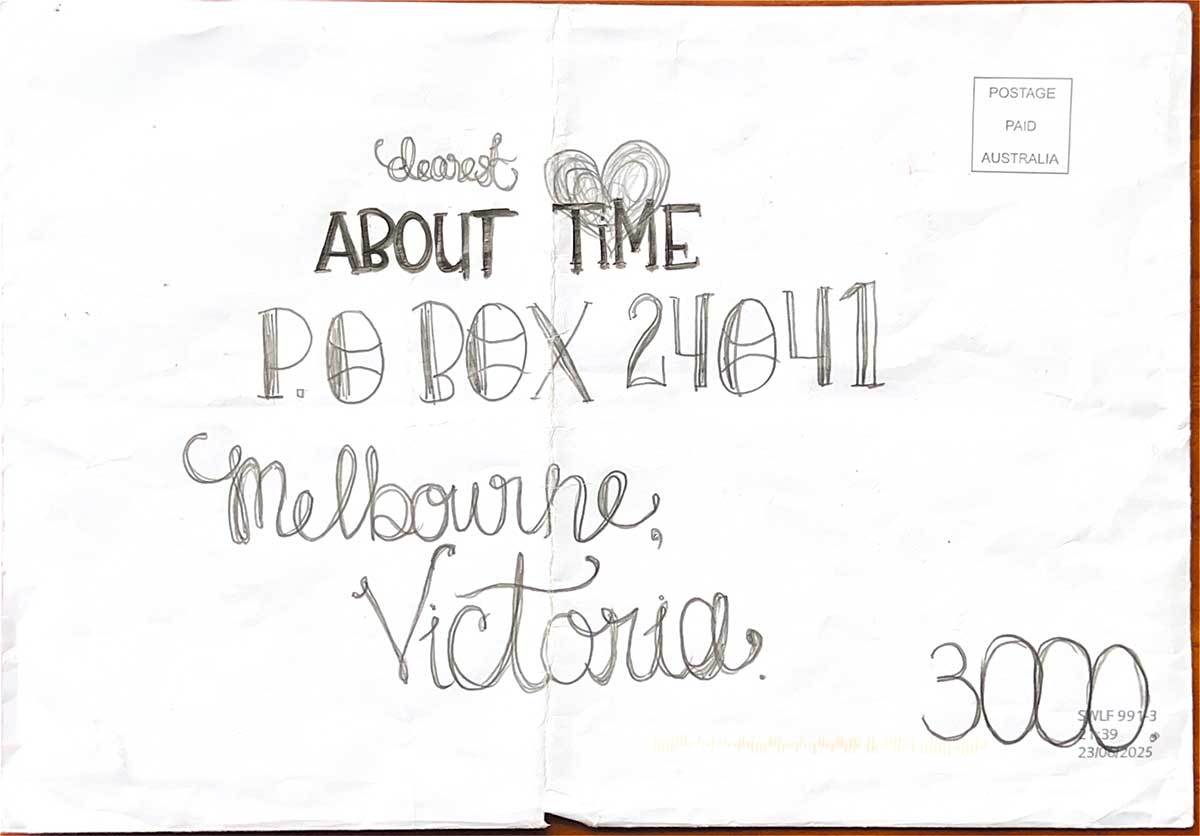 POSTAGE
PAID
AUSTRALIA
dearest
ABOUT TiME
P.O BOX 24041
Melbourne,
Victoria.
3000.
SWLF 991-3
21:39
23/06/2025